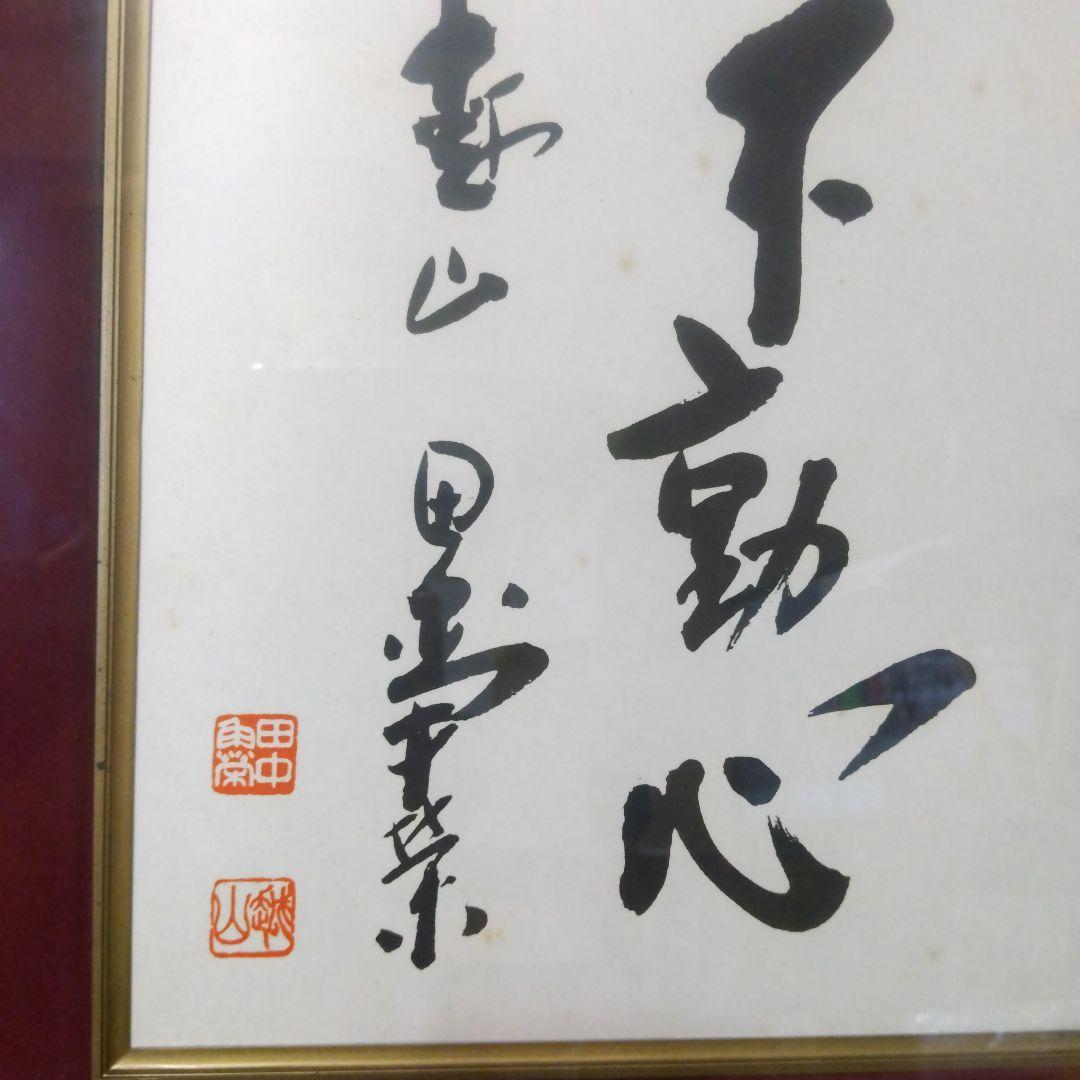 不動心
越山 田中角榮
田中
角榮
越山